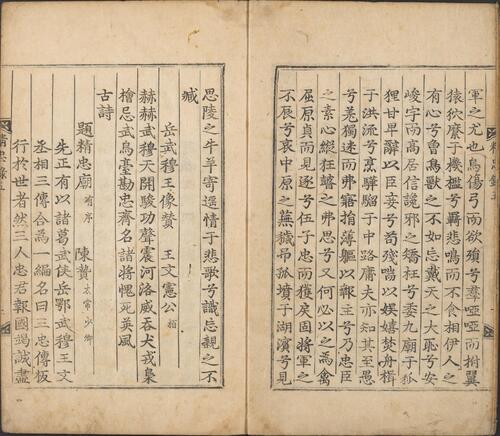 軍之尤也烏傷弓而欲殞兮羣啞啞而拊翼
猿狖縻于機檻兮羣悲鳴而不食相伊人之
有心兮曾鳥獸之不如忘戴天之大恥兮安
峻宇而高居信讒邪之矯枉兮委九廟于狐
狸甘卑辭以臣妾兮苟殘喘以娛嬉焚舟楫
于洪流兮烹驊騮于中路庸夫亦知其至愚
兮羌獨迷而弗寤揹薄軀以報主兮乃忠臣
之素心縱狂瞽之弗思兮又何必以之為禽
屈原貞而見逐兮伍子忠而獲戾固將軍之
不辰兮哀中原之蕪穢吊孤墳于湖濱兮見
思陵之牛羊寄遐情于悲歌兮識忘親之不
臧
岳武穆王像贊 王文憲公柏
赫赫武穆天開駿功聲震河洛威吞犬戎梟
檜忌武烏臺勘忠斎名諸將愧死英風
古詩
題精忠廟有序 陳贄太常少卿
先正有以諸葛武侯岳鄂武穆王文
丞相三傳合為一編名曰三忠傳板
行於世者然三人忠君報國竭誠盡
精忠錄五